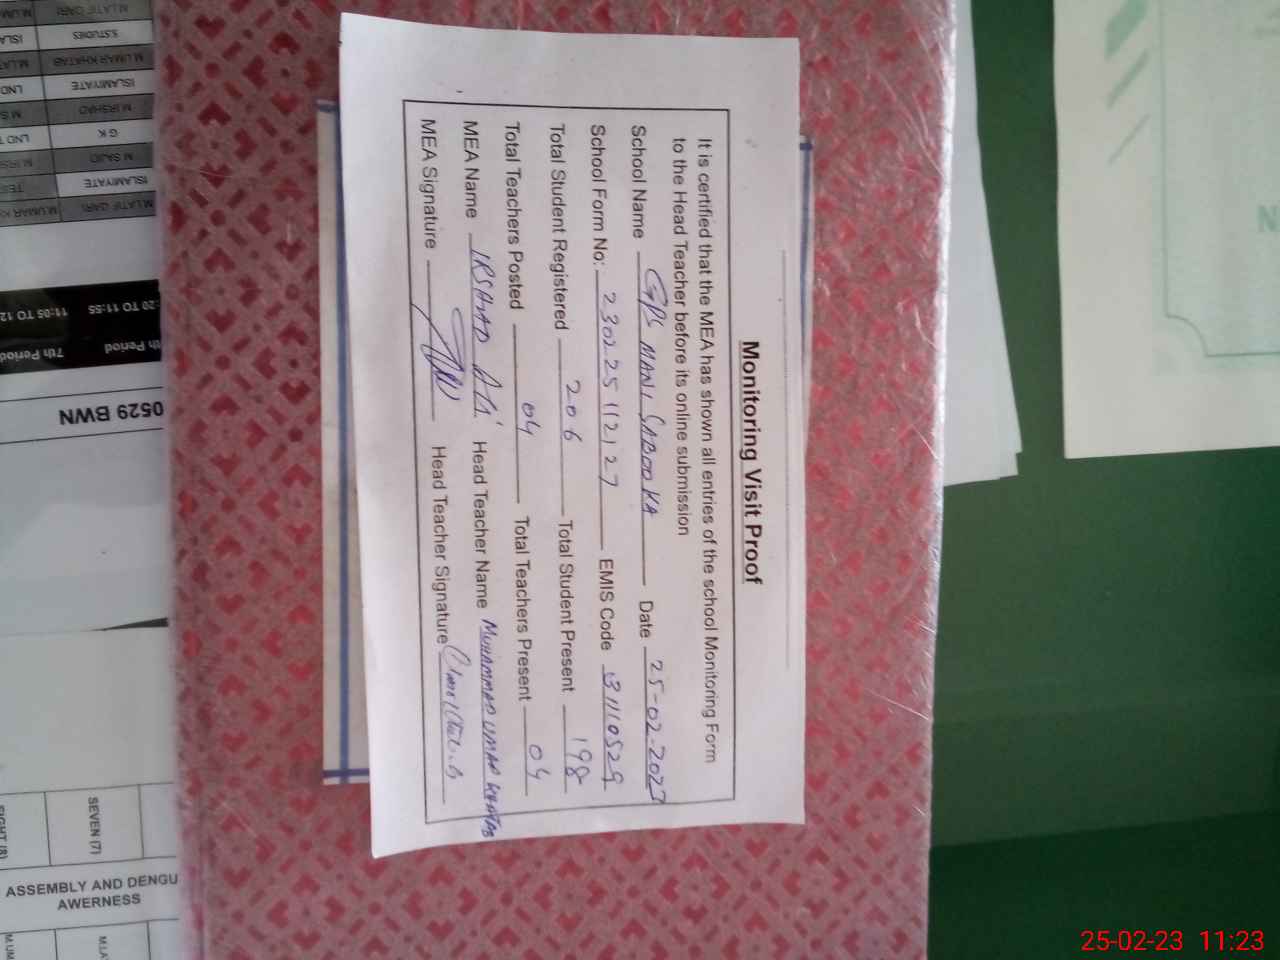 Monitoring Visit Proof
It is certified that the MEA has shown all entries of the school Monitoring Form
to the Head Teacher before its online submission
School Name GPS MANI SABOOKA Date 25-02-2023
School Form No: 230225112127 EMIS Code 31110529
Total Student Registered 206 Total Student Present 198
Total Teachers Posted 04 Total Teachers Present 04
MEA Name IRSHAD Ali Head Teacher Name MUHAMMAD UMAR KHATAB
MEA Signature Head Teacher Signature
M.LATIF QARI
S.STUDIES
M.UMAR KHATAB
ISLAMIYATE
M.IRSHAD
G K
M SAJID
ISLAMIYATE
M.LATIF QARI
:20 TO 11:55 11:05 TO 12
th Period 7th Period
0529 BWN
SEVEN (7)
ASSEMBLY AND DENGU
AWERNESS
25-02-23 11:23